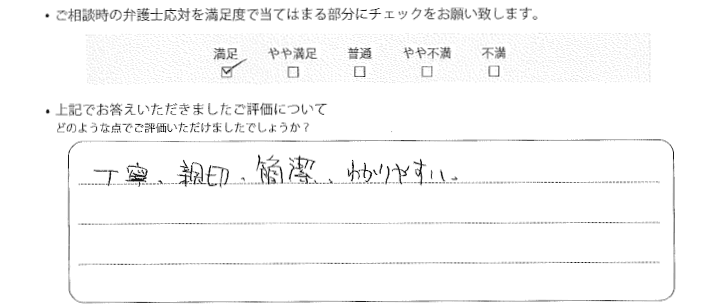 ・ご相談時の弁護士応対を満足度で当てはまる部分にチェックをお願い致します。
満足 やや満足 普通 やや不満 不満
☑ □ □ □ □
・上記でお答えいただきましたご評価について
どのような点でご評価いただけましたでしょうか?
丁寧、親切、簡潔、わかりやすい。